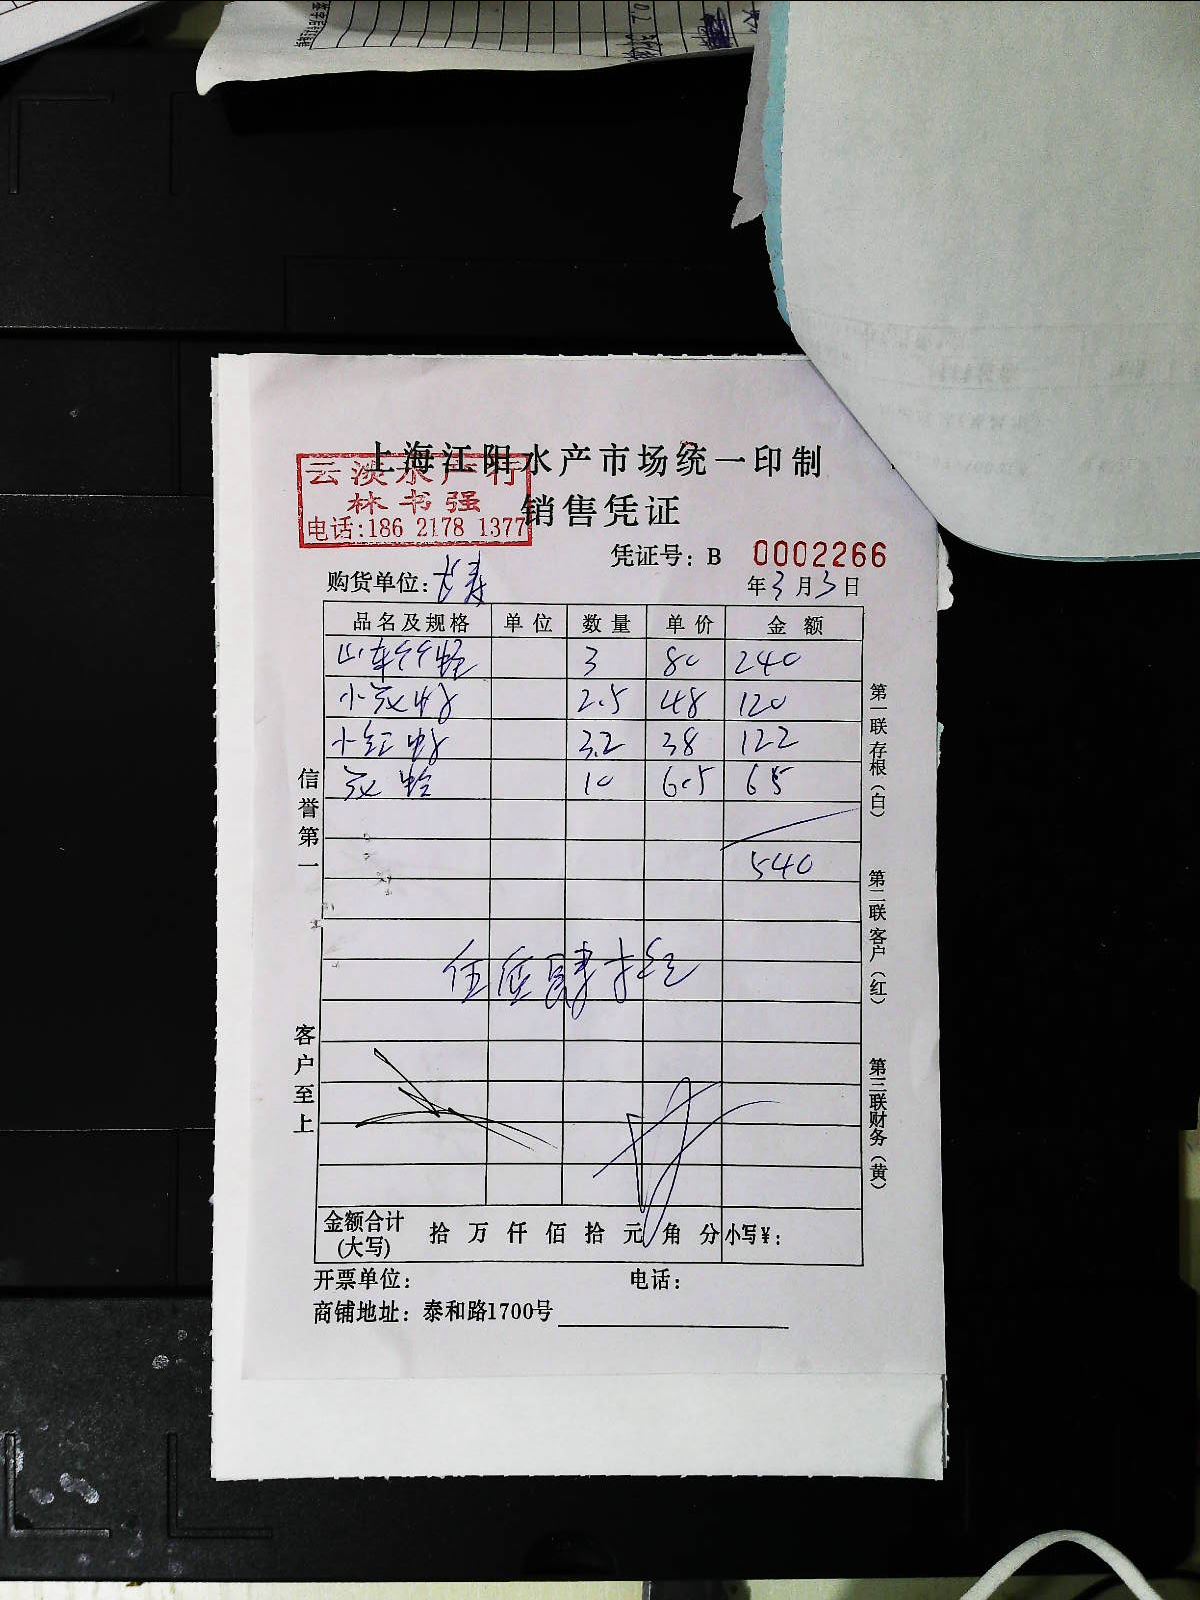 上海江阳水产市场统一印制
云淡水产行
林书强
电话:186 2178 1377
销售凭证
凭证号: B 0002266
购货单位:
年3月3日
品名及规格 单位 数量 单价 金额
山东 3 80 240
小 虾 2.5 48 120
小红虾 3.2 38 122
蛤 10 6.5 65
540
伍佰肆十元
信誉第一
客户至上
第一联存根(白)
第二联客户(红)
第三联财务(黄)
金额合计(大写) 拾 万 仟 佰 拾 元 角 分 小写¥:
开票单位: 电话:
商铺地址: 泰和路1700号